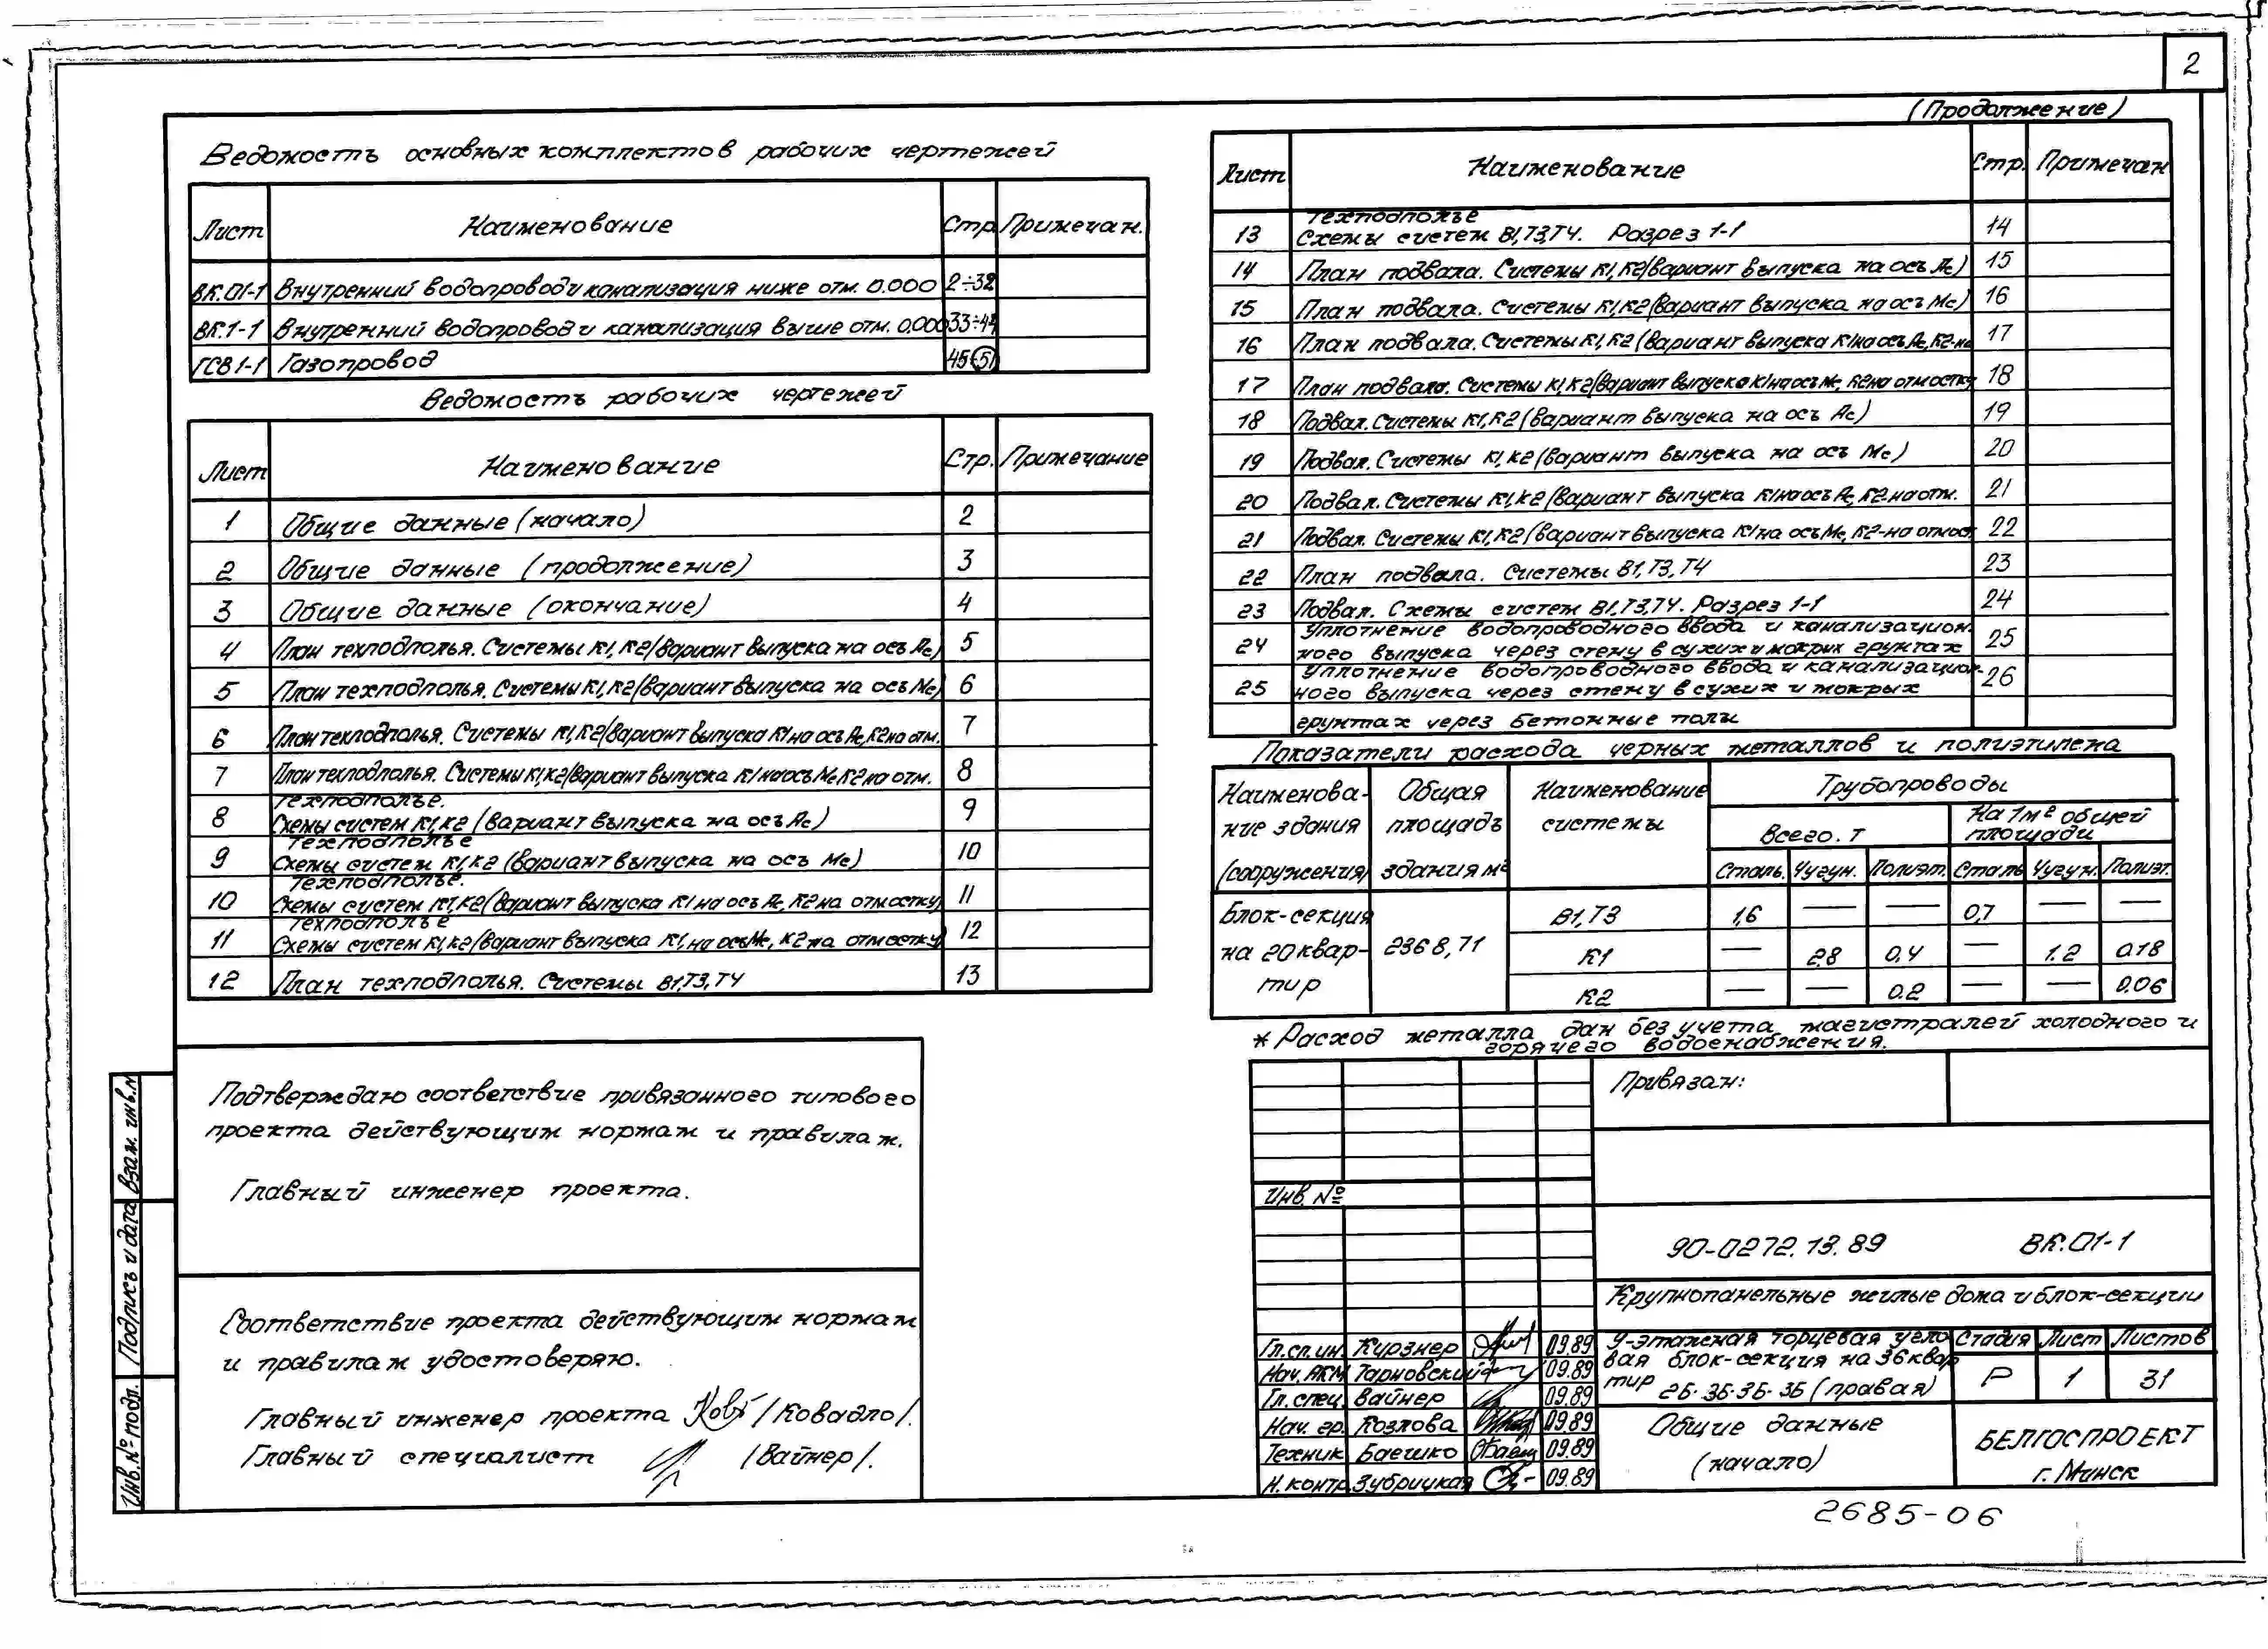 2
(Продолжение)
Ведомость основных комплектов рабочих чертежей
Лист Наименование Стр. Примечан.
ВК.01-1 Внутренний водопровод и канализация ниже отм. 0.000 2÷32
ВК.1-1 Внутренний водопровод и канализация выше отм. 0.000 33÷44
ГСВ1-1 Газопровод 45÷51
Ведомость рабочих чертежей
Лист Наименование Стр. Примечание
1 Общие данные (начало) 2
2 Общие данные (продолжение) 3
3 Общие данные (окончание) 4
4 План техподполья. Системы К1, К2 (вариант выпуска на ось Ас) 5
5 План техподполья. Системы К1, К2 (вариант выпуска на ось Мс) 6
6 План техподполья. Системы К1, К2 (вариант выпуска К1 на ось Ас, К2 на отм. 7
7 План техподполья. Системы К1, К2 (вариант выпуска К1 на ось Мс К2 на отм. 8
Техподполье.
8 Схемы систем К1, К2 (вариант выпуска на ось Ас) 9
Техподполье
9 Схемы систем К1, К2 (вариант выпуска на ось Мс) 10
Техподполье.
10 Схемы систем К1, К2 (вариант выпуска К1 на ось Ас, К2 на отмостку) 11
Техподполье
11 Схемы систем К1, К2 (вариант выпуска К1, на ось Мс, К2 на отмостку) 12
12 План техподполья. Системы В1, Т3, Т4 13
Лист Наименование Стр. Примечан
Техподполье
13 Схемы систем В1, Т3, Т4. Разрез 1-1 14
14 План подвала. Системы К1, К2 (вариант выпуска на ось Ас) 15
15 План подвала. Системы К1, К2 (вариант выпуска на ось Мс) 16
16 План подвала. Системы К1, К2 (вариант выпуска К1 на ось Ас, К2-на 17
17 План подвала. Системы К1, К2 (вариант выпуска К1 на ось Мс, К2 на отмостку 18
18 Подвал. Системы К1, К2 (вариант выпуска на ось Ас) 19
19 Подвал. Системы К1, К2 (вариант выпуска на ось Мс) 20
20 Подвал. Системы К1, К2 (вариант выпуска К1 на ось Ас, К2 на отм. 21
21 Подвал. Системы К1, К2 (вариант выпуска К1 на ось Мс, К2-на отмос 22
22 План подвала. Системы В1, Т3, Т4 23
23 Подвал. Схемы систем В1, Т3, Т4. Разрез 1-1 24
Уплотнение водопроводного ввода и канализацион-
24 ного выпуска через стену в сухих и мокрых грунтах 25
Уплотнение водопроводного ввода и канализацион-
25 ного выпуска через стену в сухих и мокрых 26
грунтах через бетонные полы
Показатели расхода черных металлов и полиэтилена
Наименова- Общая Наименование Трубопроводы
ние здания площадь системы Всего. т На 1м² общей площади
(сооружения) здания м² Сталь. Чугун. Полиэт. Сталь Чугун. Полиэт.
Блок-секция В1, Т3 1,6 — — 0,7 — —
на 20 квар- 2368,71 К1 — 2.8 0,4 — 1.2 0.18
тир К2 — — 0.2 — — 0.06
* Расход металла дан без учета магистралей холодного и
горячего водоснабжения.
Подтверждаю соответствие привязанного типового
проекта действующим нормам и правилам.
Главный инженер проекта.
Соответствие проекта действующим нормам
и правилам удостоверяю.
Главный инженер проекта /Ковадло/.
Главный специалист /Вайнер/.
Взам. инв. №
Подпись и дата
Инв. № подл.
Привязан:
Инв. №
90-0272.13.89 ВК.01-1
Крупнопанельные жилые дома и блок-секции
9-этажная торцевая угло
вая блок-секция на 36 квар
тир 2Б-3Б-3Б-3Б (правая)
Стадия Лист Листов
Р 1 31
Гл.сп.ин. Курзнер 09.89
Нач. АКМ Тарновский 09.89
Гл. спец. Вайнер 09.89
Нач. гр. Козлова 09.89
Техник Баешко 09.89
Н. контр. Зубрицкая 09.89
Общие данные
(начало)
БЕЛГОСПРОЕКТ
г. Минск
2685-06